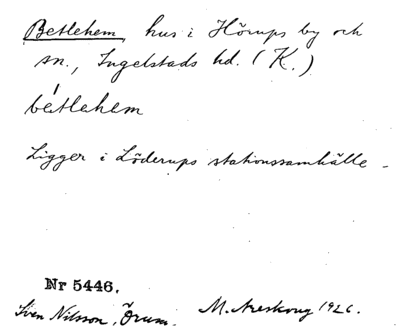 Betlehem hus i Hörups by och
sn., Ingelstads hd. (K.)
bétlehem
Ligger i Löderups stationssamhälle.
Nr 5446.
Sven Nilsson, Örum. M. Areskoug 1926.